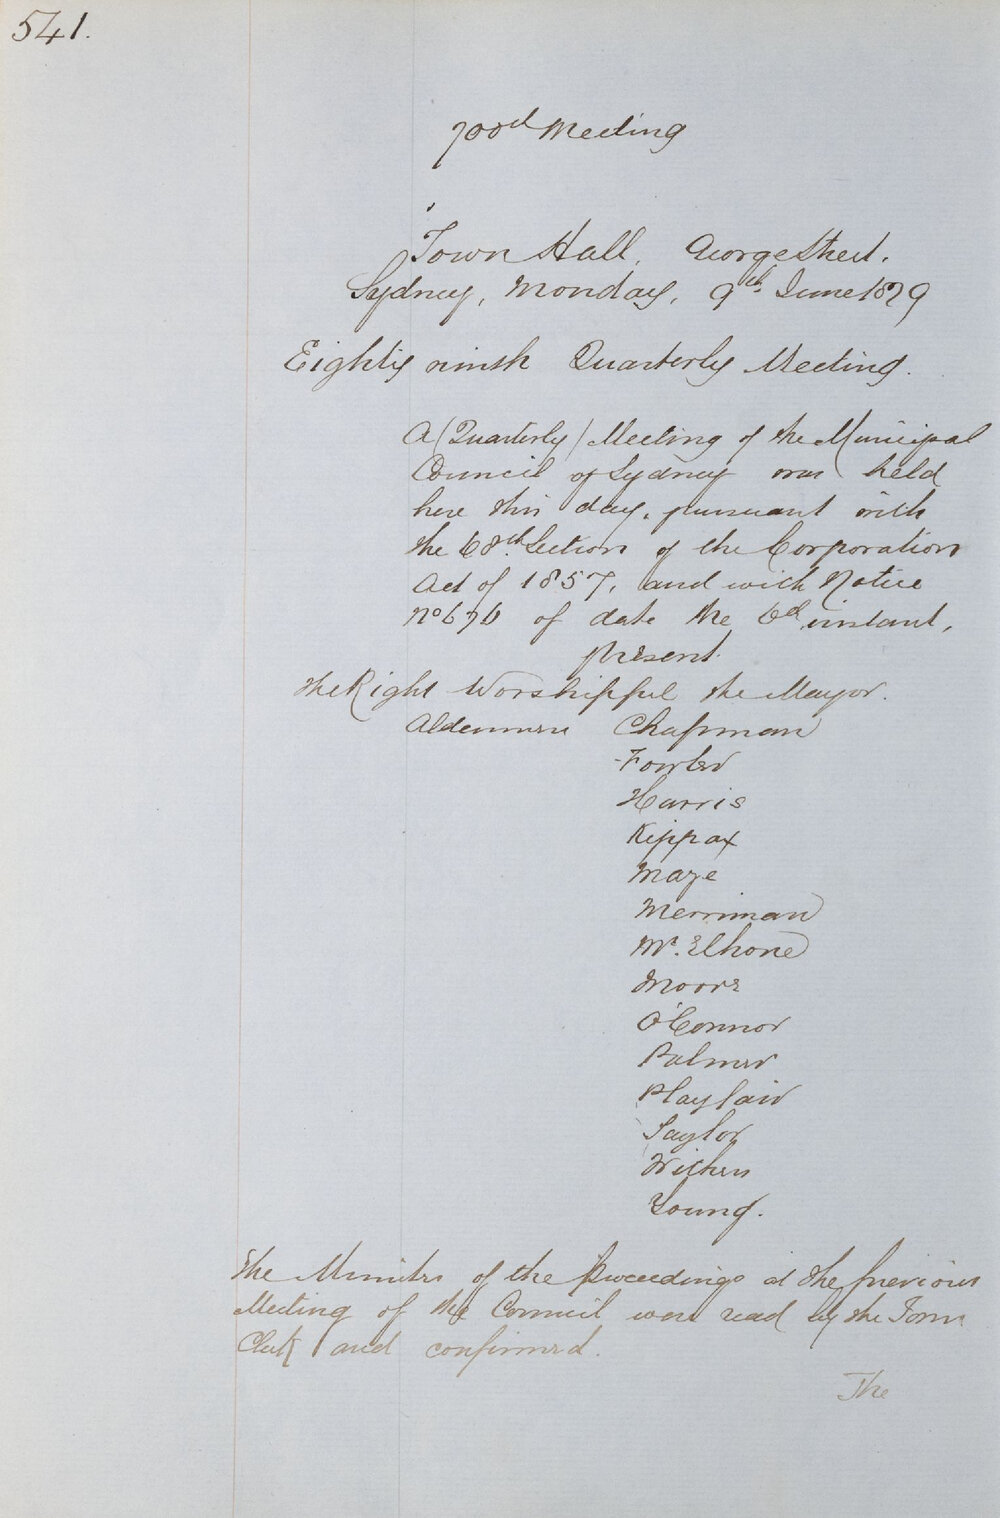 541.
700d Meeting
Town Hall, George Street.
Sydney, Monday, 9th June 1879
Eighty ninth Quarterly Meeting.
A (Quarterly) Meeting of the Municipal
Council of Sydney was held
here this day, pursuant with
the 68th Section of the Corporation
Act of 1857, and with Notice
No 676 of date the 6d instant,
present.
The Right Worshipful the Mayor.
Aldermen Chapman
Fowler
Harris
Kippax
Maze
Merriman
Mc.Elhone
Moore
O'Connor
Palmer
Playfair
Taylor
Withers
Young.
The Minutes of the Proceedings at the previous
Meeting of the Council were read by the Town
Clerk and confirmed.
The